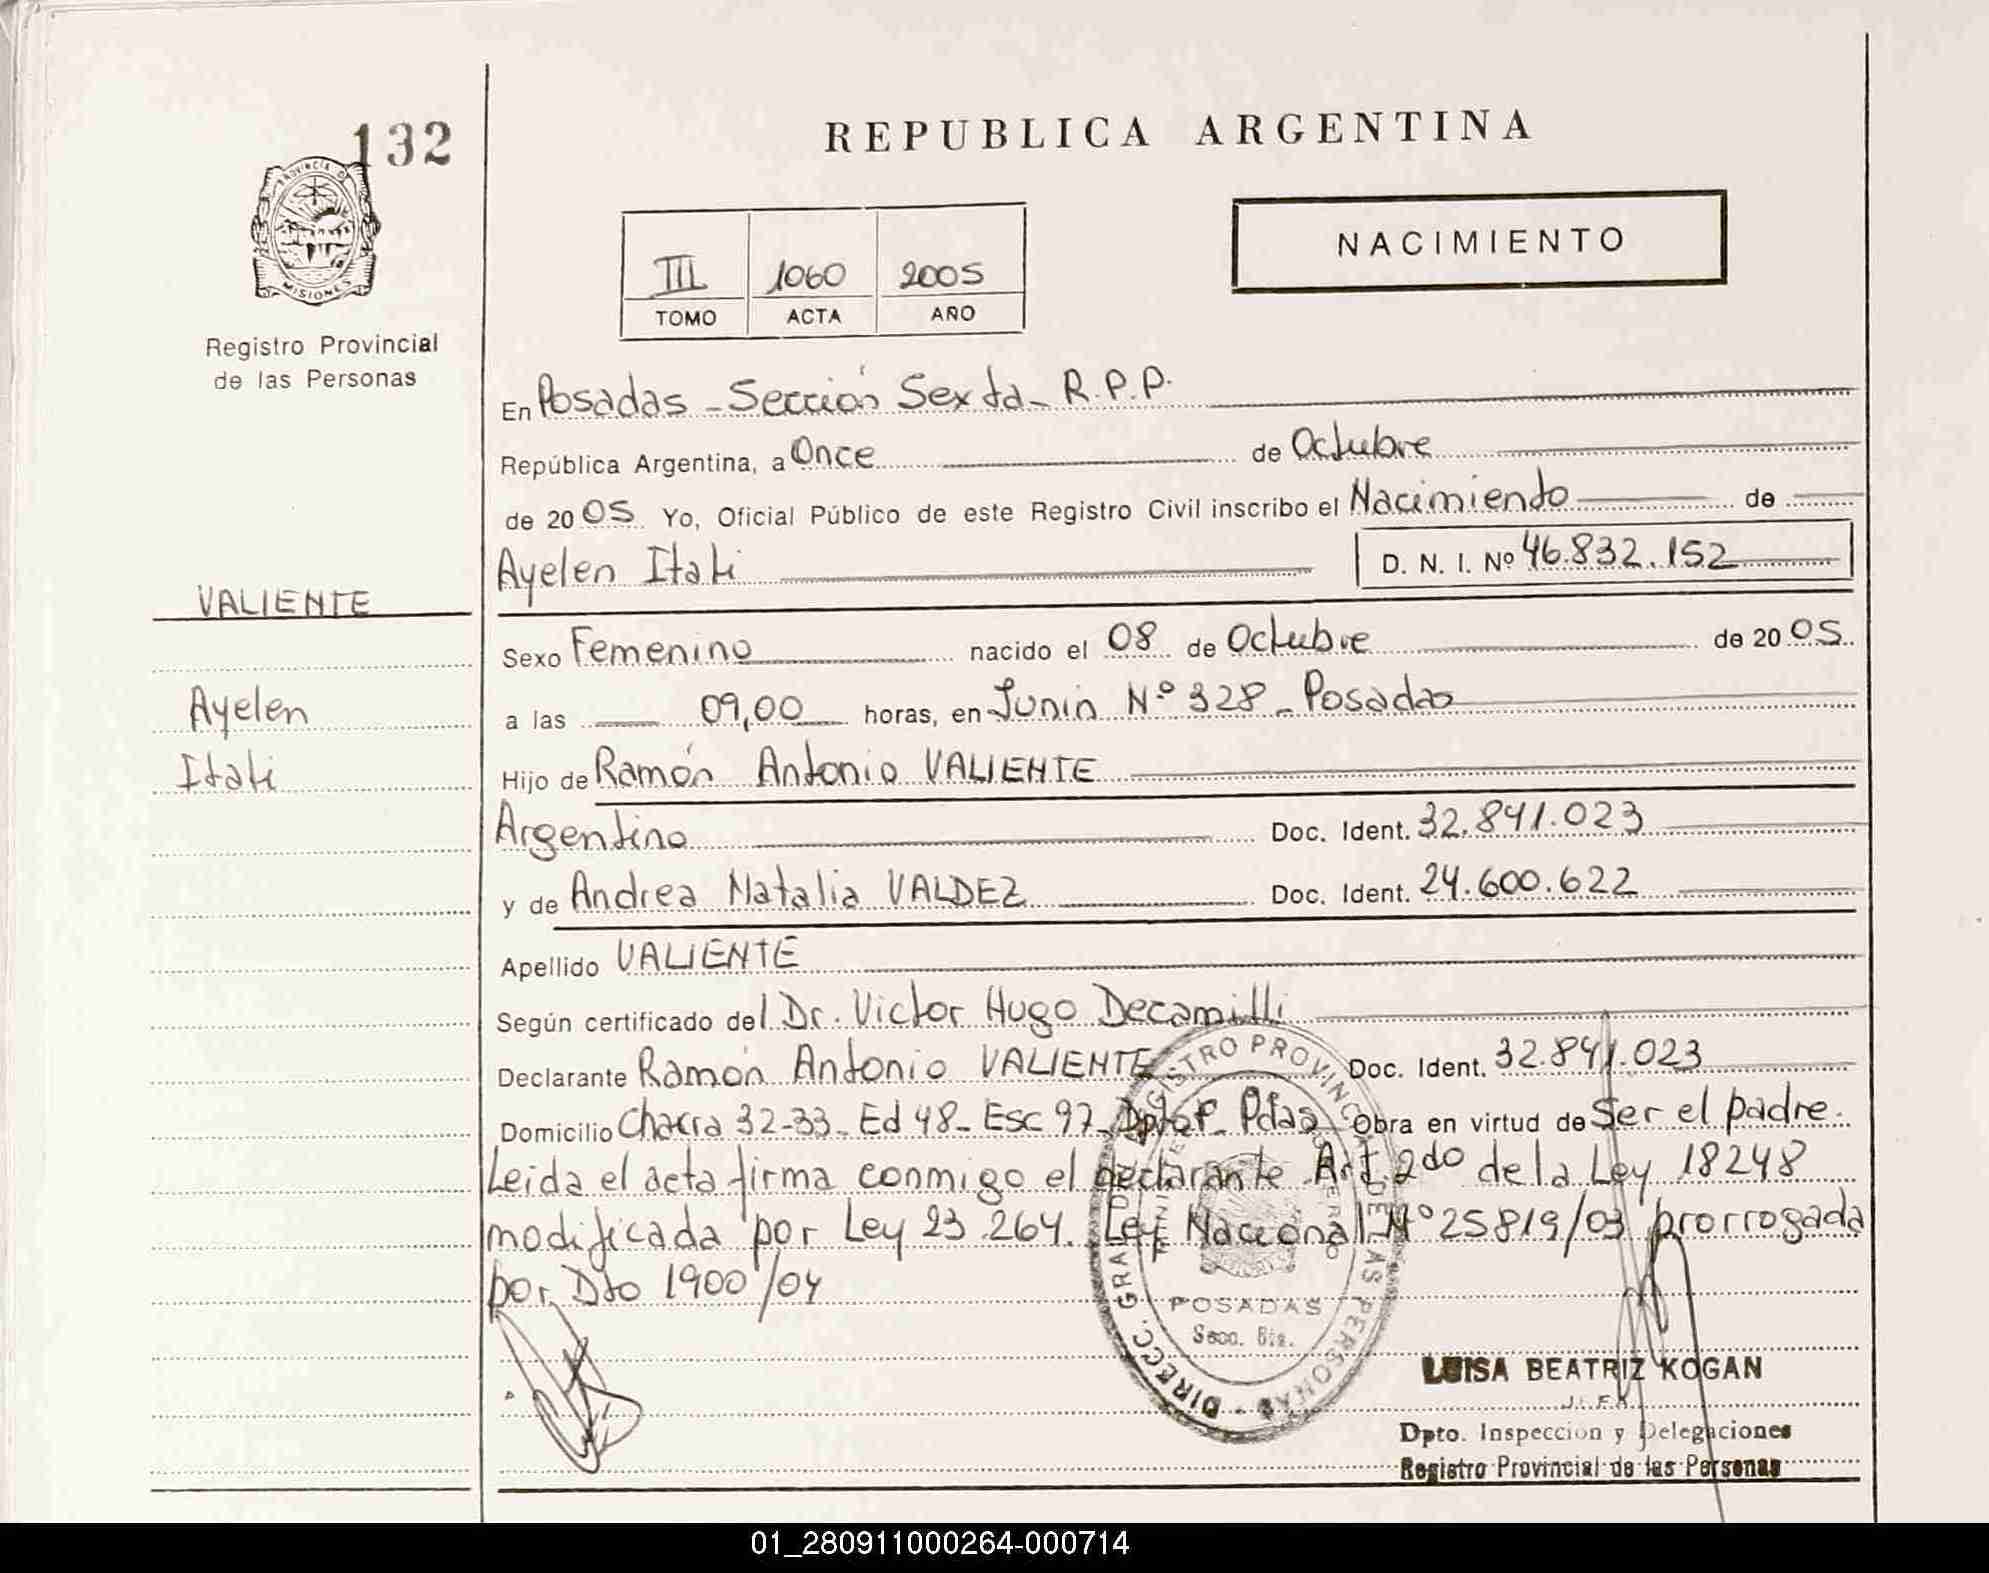 132
PROVINCIA DE
MISIONES
Registro Provincial
de las Personas
VALIENTE
Ayelen
Itati
REPUBLICA ARGENTINA
NACIMIENTO
III 1060 2005
TOMO ACTA AÑO
En Posadas - Sección Sexta - R.P.P.
República Argentina, a Once de Octubre
de 2005 Yo, Oficial Público de este Registro Civil inscribo el Nacimiento de
Ayelen Itati D. N. I. Nº 46.832.152
Sexo Femenino nacido el 08 de Octubre de 2005
a las 09,00 horas, en Junin Nº 328 - Posadas
Hijo de Ramón Antonio VALIENTE
Argentino Doc. Ident. 32.841.023
y de Andrea Natalia VALDEZ Doc. Ident. 24.600.622
Apellido VALIENTE
Según certificado del Dr. Victor Hugo Decamilli
Declarante Ramón Antonio VALIENTE Doc. Ident. 32.841.023
Domicilio Chacra 32-33- Ed 48- Esc 97- Pdas Obra en virtud de Ser el padre.
Leida el acta firma conmigo el declarante Art. 2do de la Ley 18248
modificada por Ley 23.264. Ley Nacional Nº 25819/03 prorrogada
por Dto 1900/04
POSADAS
Secc. 6ta.
LUISA BEATRIZ KOGAN
Dpto. Inspeccion y Delegaciones
Registro Provincial de las Personas
01_280911000264-000714